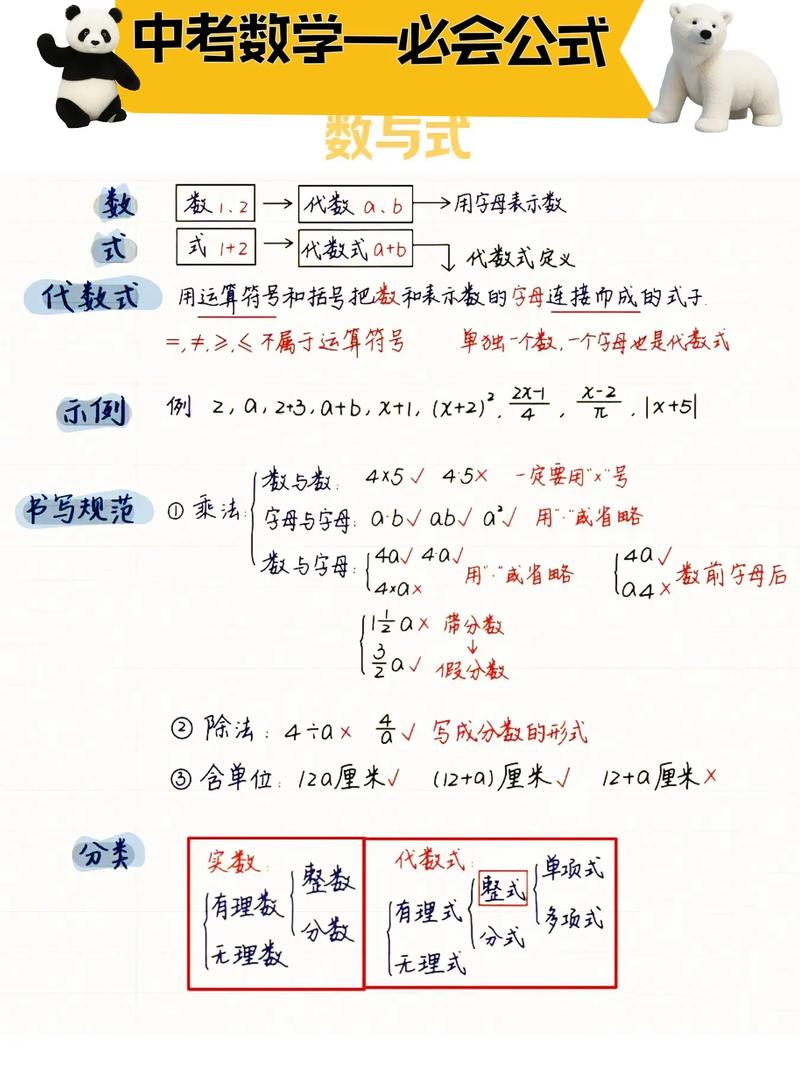 中考数学一必会公式
数与式
数 数1、2 → 代数 a、b → 用字母表示数
式 式 1+2 → 代数式a+b ↓ 代数式定义
代数式 用运算符号和括号把数和表示数的字母连接而成的式子.
=,≠,≥,≤不属于运算符号 单独一个数,一个字母也是代数式
示例 例 2, a, 2+3, a+b, x+1, (x+2)², (2x-1)/4, (x-2)/π, |x+5|
书写规范 ① 乘法:
数与数: 4×5✓ 4·5× 一定要用"×"号
字母与字母: a·b✓ ab✓ a²✓ 用"·"或省略
数与字母: 4a✓ 4·a✓
4×a× 用"·"或省略
4a✓
a4× 数前字母后
1½a× 带分数
↓
3/2a✓ 假分数
② 除法: 4÷a× 4/a✓ 写成分数的形式
③ 含单位: 12a厘米✓ (12+a)厘米✓ 12+a厘米×
分类
实数:
有理数
整数
分数
无理数
代数式:
有理式
整式
单项式
多项式
分式
无理式